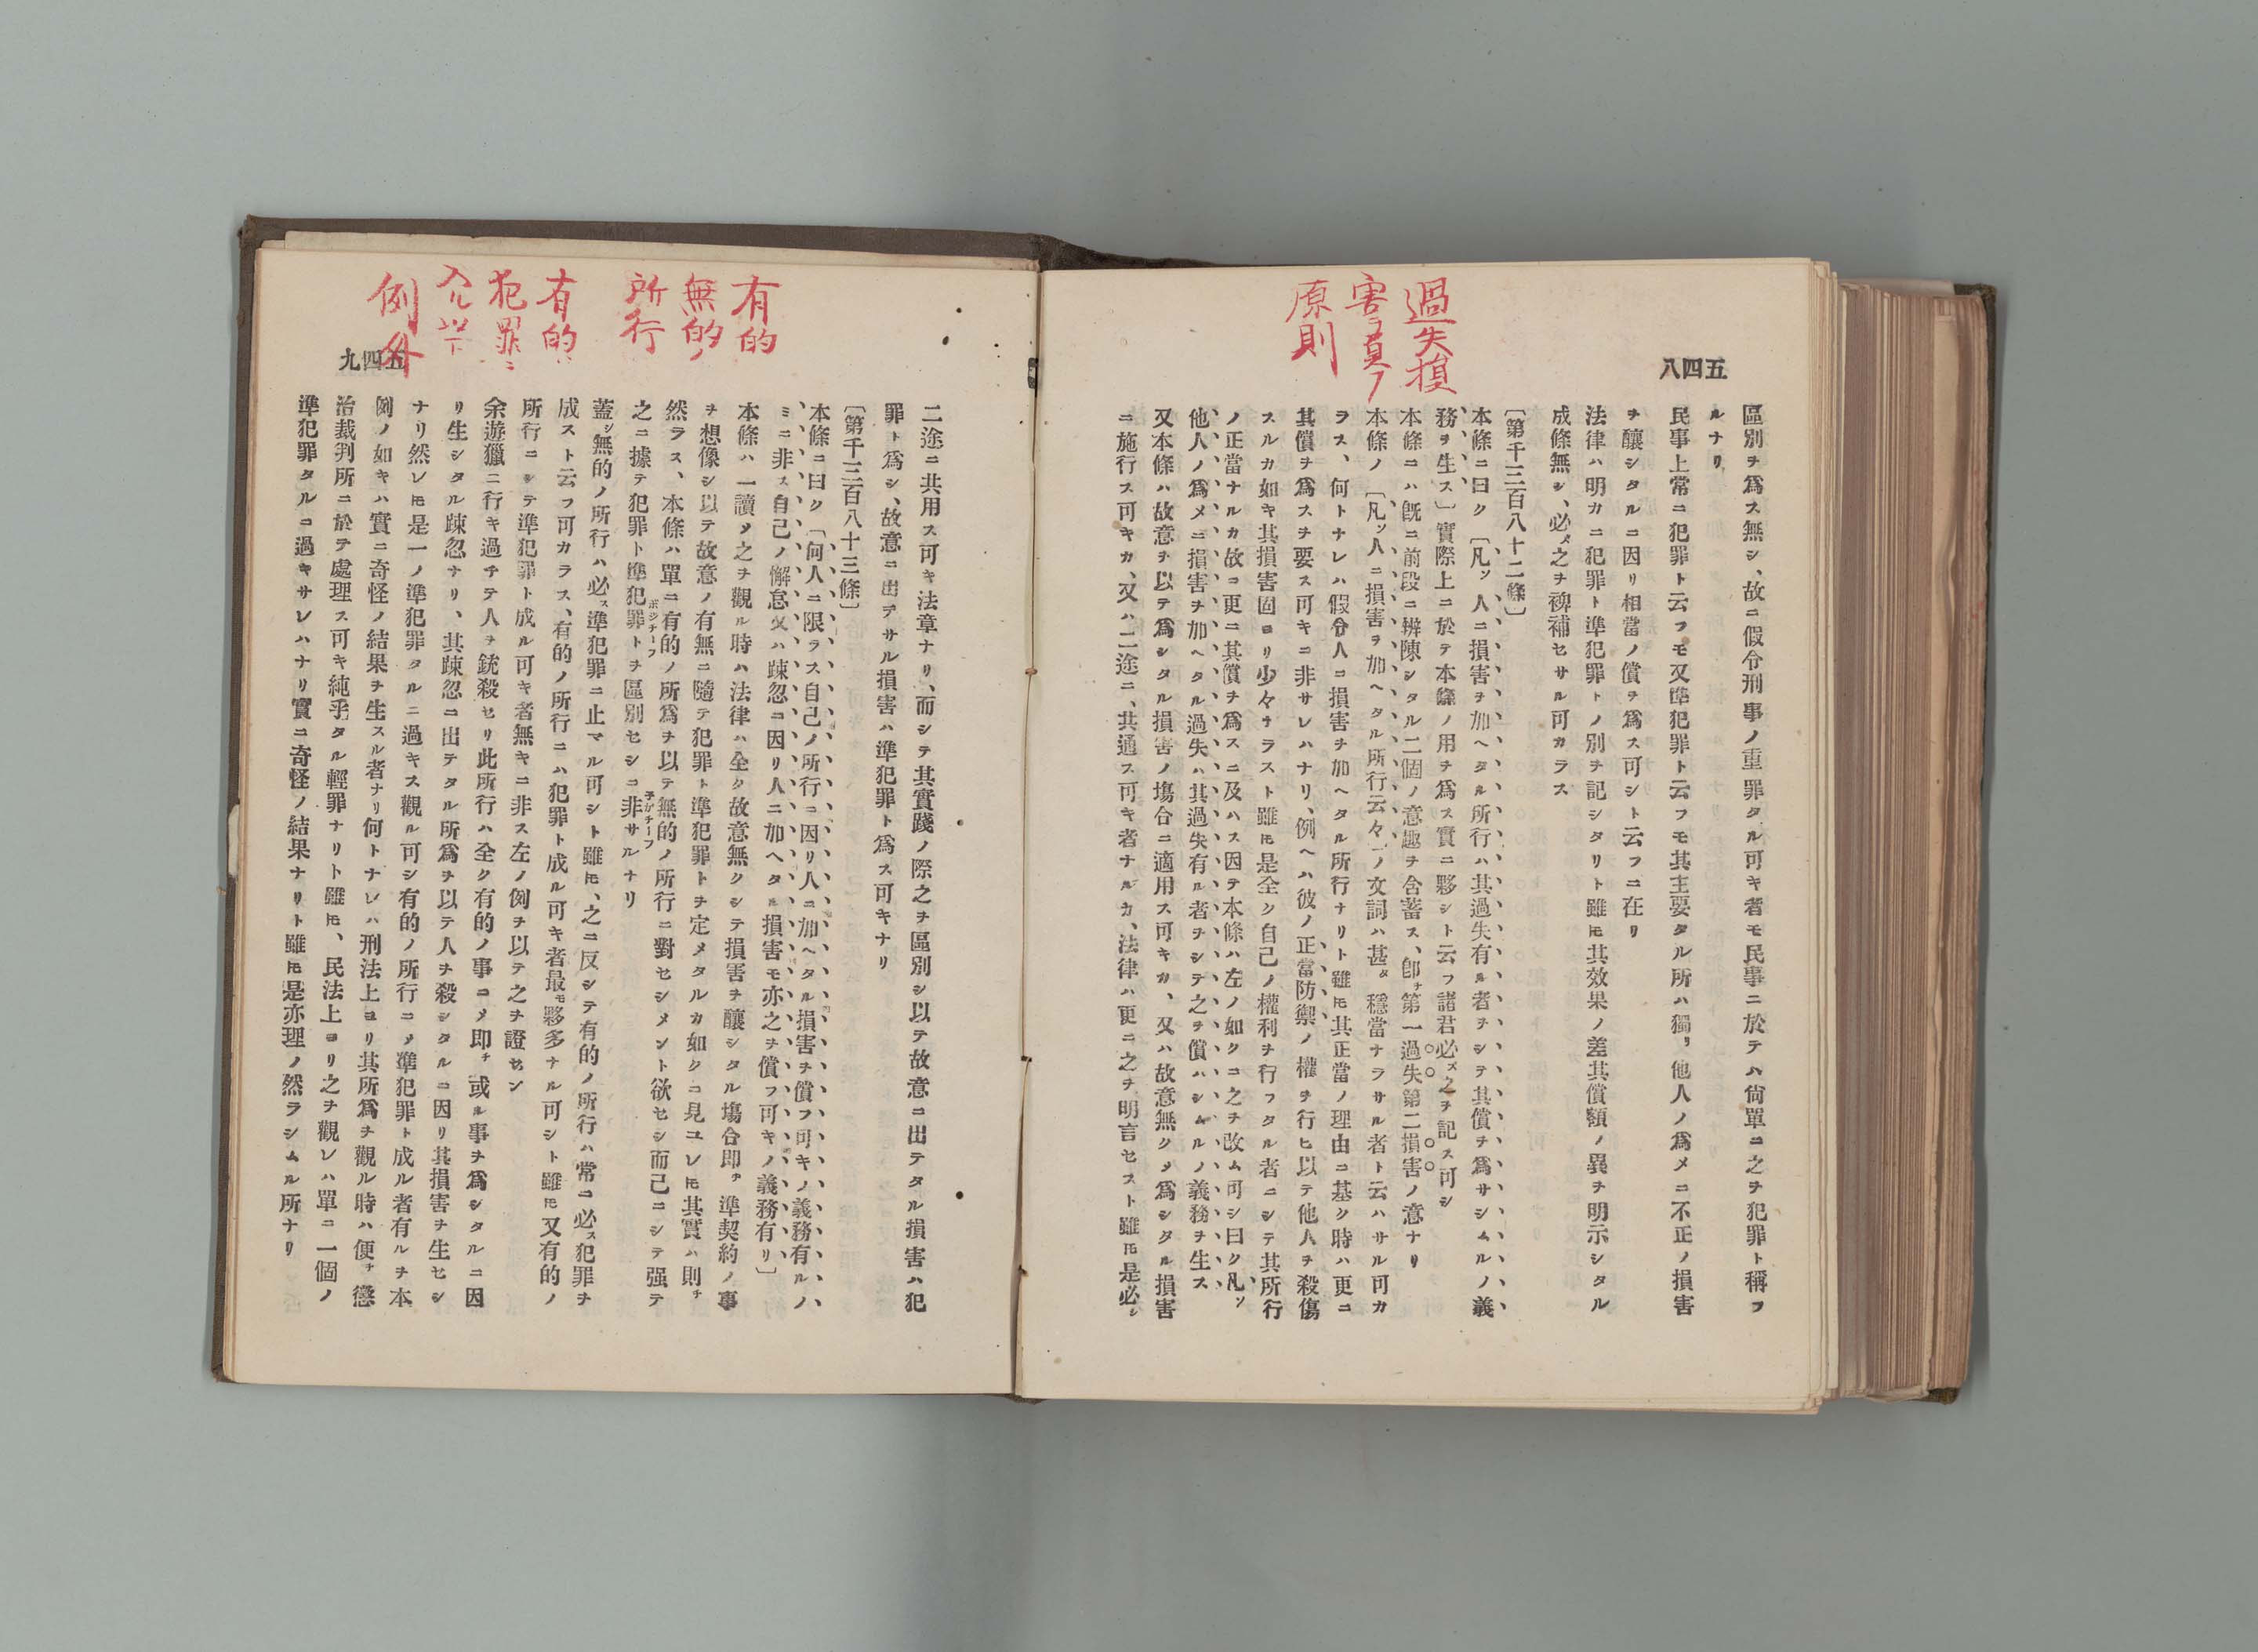 過失損
害ヲ負フ
原則
五四八
區別ヲ爲ス無シ、故ニ假令刑事ノ重罪タル可キ者モ民事ニ於テハ尙單ニ之ヲ犯罪ト稱フ
ルナリ
民事上常ニ犯罪ト云フモ又準犯罪ト云フモ其主要タル所ハ獨リ他人ノ爲メニ不正ノ損害
ヲ釀シタルニ因リ相當ノ償ヲ爲ス可シト云フニ在リ
法律ハ明カニ犯罪ト準犯罪トノ別ヲ記シタリト雖𪜈其效果ノ差其償額ノ異ヲ明示シタル
成條無シ、必ス之ヲ裨補セサル可カラス
〔第千三百八十二條〕
本條ニ曰ク〔凡ソ人ニ損害ヲ加ヘタル所行ハ其過失有ル者ヲシテ其償ヲ爲サシムルノ義
務ヲ生ス〕實際上ニ於テ本條ノ用ヲ爲ス實ニ夥シト云フ諸君必ス之ヲ記ス可シ
本條ニハ既ニ前段ニ辨陳シタル二個ノ意趣ヲ含蓄ス、卽チ第一過失第二損害ノ意ナリ
本條ノ〔凡ソ人ニ損害ヲ加ヘタル所行云々〕ノ文詞ハ甚タ穩當ナラサル者ト云ハサル可カ
ラス、何トナレハ假令人ニ損害ヲ加ヘタル所行ナリト雖𪜈其正當ノ理由ニ基ク時ハ更ニ
其償ヲ爲スヲ要ス可キニ非サレハナリ、例ヘハ彼ノ正當防禦ノ權ヲ行ヒ以テ他人ヲ殺傷
スルカ如キ其損害固ヨリ少々ナラスト雖𪜈是全ク自己ノ權利ヲ行フタル者ニシテ其所行
ノ正當ナルカ故ニ更ニ其償ヲ爲スニ及ハス因テ本條ハ左ノ如クニ之ヲ改ム可シ曰ク凡ソ
他人ノ爲メニ損害ヲ加ヘタル過失ハ其過失有ル者ヲシテ之ヲ償ハシムルノ義務ヲ生ス
又本條ハ故意ヲ以テ爲シタル損害ノ塲合ニ適用ス可キカ、又ハ故意無クシテ爲シタル損害
ニ施行ス可キカ、又ハ二途ニ、共通ス可キ者ナルカ、法律ハ更ニ之ヲ明言セスト雖𪜈是必シ
有的
無的ノ
所行
有的
犯罪ニ
入ル以下
例外
五四九
二途ニ共用ス可キ法章ナリ、而シテ其實踐ノ際之ヲ區別シ以テ故意ニ出テタル損害ハ犯
罪ト爲シ、故意ニ出テサル損害ハ準犯罪ト爲ス可キナリ
〔第千三百八十三條〕
本條ニ曰ク〔何人ニ限ラス自己ノ所行ニ因リ人ニ加ヘタル損害ヲ償フ可キノ義務有ルノ
ミニ非ス自己ノ懈怠又ハ疎忽ニ因リ人ニ加ヘタル損害モ亦之ヲ償フ可キノ義務有リ〕
本條ハ一讀シテ之ヲ觀ル時ハ法律ハ全ク故意無クシテ損害ヲ釀シタル塲合卽チ準契約ノ事
ヲ想像シ以テ故意ノ有無ニ隨テ犯罪ト準犯罪トヲ定メタルカ如クニ見ユレ𪜈其實ハ則チ
然ラス、本條ハ單ニ有的ノ所爲ヲ以テ無的ノ所行ニ對セシメント欲セシ而已ニシテ强テ
之ニ據テ犯罪ト準犯罪トヲ區別セシニ非サルナリ
蓋シ無的ノ所行ハ必ス準犯罪ニ止マル可シト雖𪜈、之ニ反シテ有的ノ所行ハ常ニ必ス犯罪ヲ
成スト云フ可カラス、有的ノ所行ニハ犯罪ト成ル可キ者最モ夥多ナル可シト雖𪜈又有的ノ
所行ニシテ準犯罪ト成ル可キ者無キニ非ス左ノ例ヲ以テ之ヲ證セン
余遊獵ニ行キ過テテ人ヲ銃殺セリ此所行ハ全ク有的ノ事ニシテ卽チ或ル事ヲ爲シタルニ因
リ生シタル疎忽ナリ、其疎忽ニ出テタル所爲ヲ以テ人ヲ殺シタルニ因リ其損害ヲ生セシ
ナリ然レ𪜈是一ノ準犯罪タルニ過キス觀ル可シ有的ノ所行ニシテ準犯罪ト成ル者有ルヲ本
例ノ如キハ實ニ奇怪ノ結果ヲ生スル者ナリ何トナレハ刑法上ヨリ其所爲ヲ觀ル時ハ便チ懲
治裁判所ニ於テ處理ス可キ純乎タル輕罪ナリト雖𪜈、民法上ヨリ之ヲ觀レハ單ニ一個ノ
準犯罪タルニ過キサレハナリ實ニ奇怪ノ結果ナリト雖𪜈是亦理ノ然ラシムル所ナリ